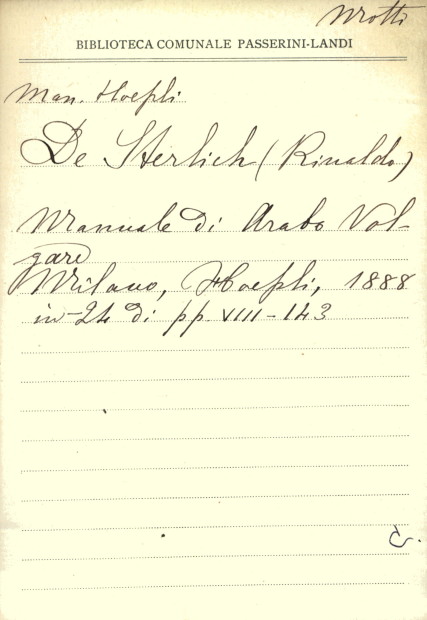 BIBLIOTECA COMUNALE PASSERINI-LANDI
Man. Hoepli
De Sterlich (Rinaldo)
Manuale di Arabo Vol-
gare
Milano, Hoepli, 1888
in-24 di pp. VIII-143